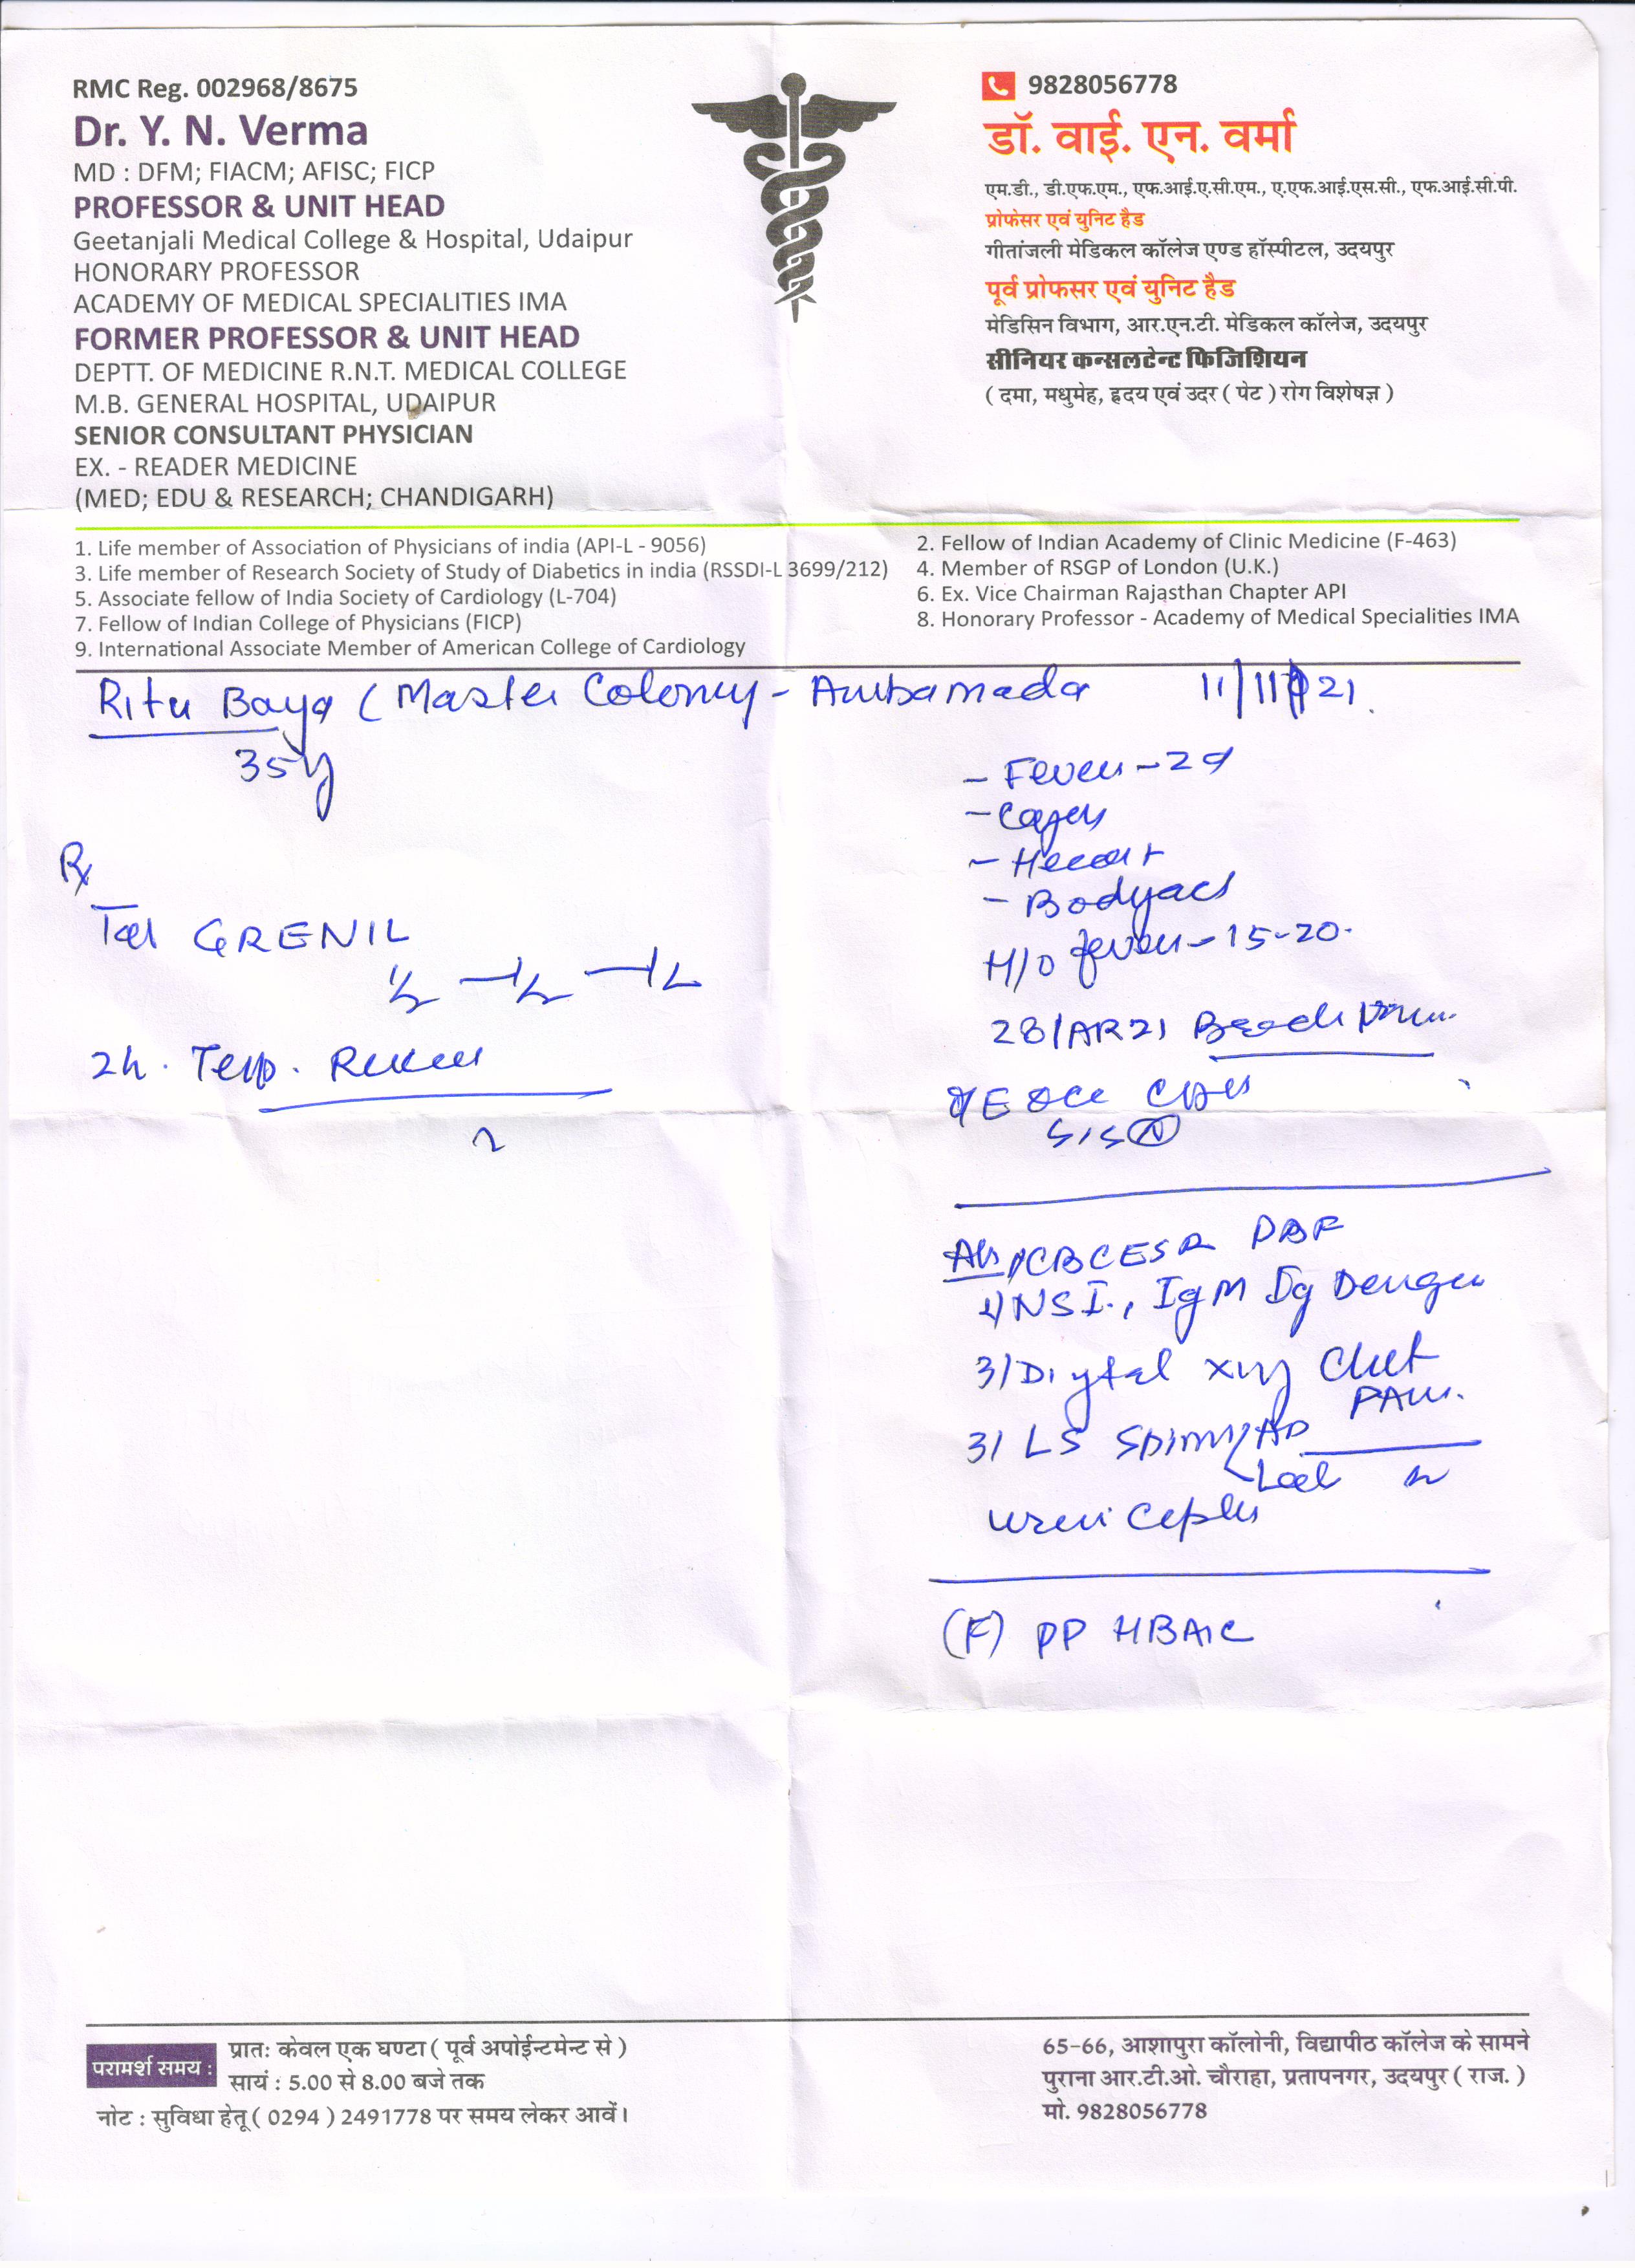 RMC Reg. 002968/8675
Dr. Y. N. Verma
MD : DFM; FIACM; AFISC; FICP
PROFESSOR & UNIT HEAD
Geetanjali Medical College & Hospital, Udaipur
HONORARY PROFESSOR
ACADEMY OF MEDICAL SPECIALITIES IMA
FORMER PROFESSOR & UNIT HEAD
DEPTT. OF MEDICINE R.N.T. MEDICAL COLLEGE
M.B. GENERAL HOSPITAL, UDAIPUR
SENIOR CONSULTANT PHYSICIAN
EX. - READER MEDICINE
(MED; EDU & RESEARCH; CHANDIGARH)
9828056778
डॉ. वाई. एन. वर्मा
एम.डी., डी.एफ.एम., एफ.आई.ए.सी.एम., ए.एफ.आई.एस.सी., एफ.आई.सी.पी.
प्रोफेसर एवं युनिट हैड
गीतांजली मेडिकल कॉलेज एण्ड हॉस्पीटल, उदयपुर
पूर्व प्रोफसर एवं युनिट हैड
मेडिसिन विभाग, आर.एन.टी. मेडिकल कॉलेज, उदयपुर
सीनियर कन्सलटेन्ट फिजिशियन
( दमा, मधुमेह, ह्रदय एवं उदर ( पेट ) रोग विशेषज्ञ )
1. Life member of Association of Physicians of india (API-L - 9056)
2. Fellow of Indian Academy of Clinic Medicine (F-463)
3. Life member of Research Society of Study of Diabetics in india (RSSDI-L 3699/212)
4. Member of RSGP of London (U.K.)
5. Associate fellow of India Society of Cardiology (L-704)
6. Ex. Vice Chairman Rajasthan Chapter API
7. Fellow of Indian College of Physicians (FICP)
8. Honorary Professor - Academy of Medical Specialities IMA
9. International Associate Member of American College of Cardiology
Ritu Baya (Master Colony - Ambamada 11/11/21.
35y
Rx
Tab GRENIL
1/2 - 1/2 - 1/2
2h. Temp. Record
- Fever - 2d
- Bodyach
H/O fever - 15-20.
S1S2 (N)
1/ CBC ESR PBF
2/ NS1., IgM Ig Dengue
3/ Digital xray Chest
PA
3/ LS Spine AP
Lat
(F) PP HBA1C
परामर्श समय :
प्रातः केवल एक घण्टा ( पूर्व अपोईन्टमेन्ट से )
सायं : 5.00 से 8.00 बजे तक
नोट : सुविधा हेतू ( 0294 ) 2491778 पर समय लेकर आवें।
65-66, आशापुरा कॉलोनी, विद्यापीठ कॉलेज के सामने
पुराना आर.टी.ओ. चौराहा, प्रतापनगर, उदयपुर ( राज. )
मो. 9828056778